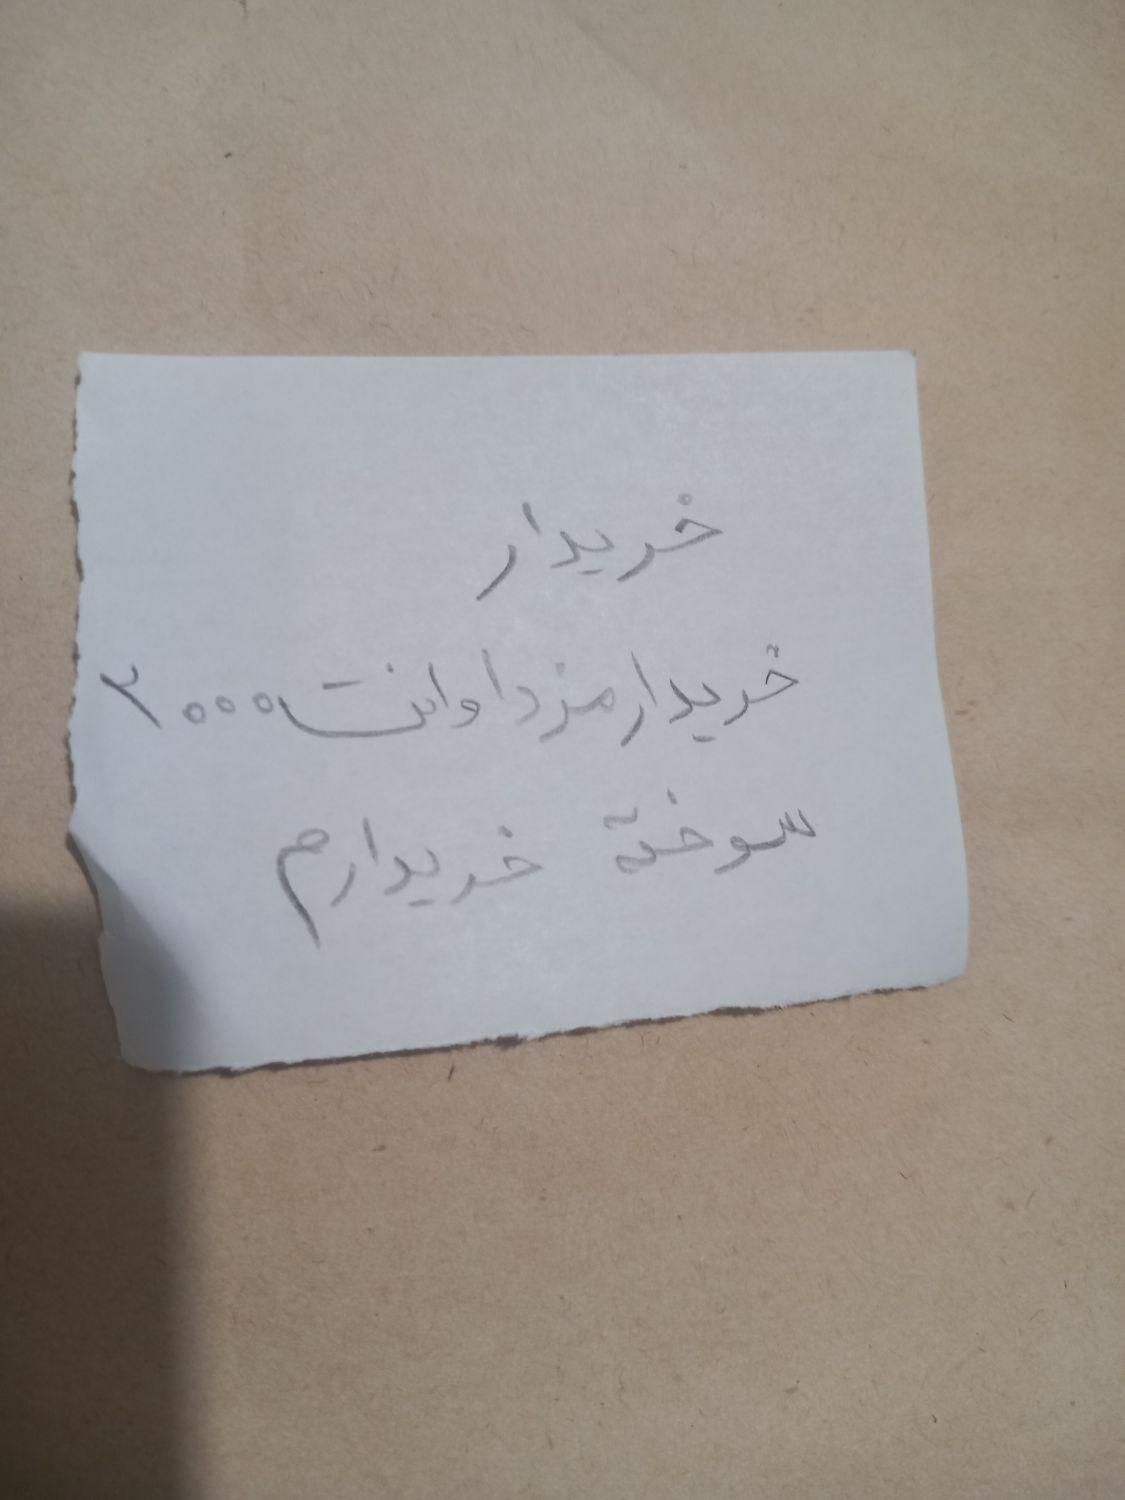 خریدار
خریدار مزدا وانت ۲۰۰۰
سوخته خریدارم